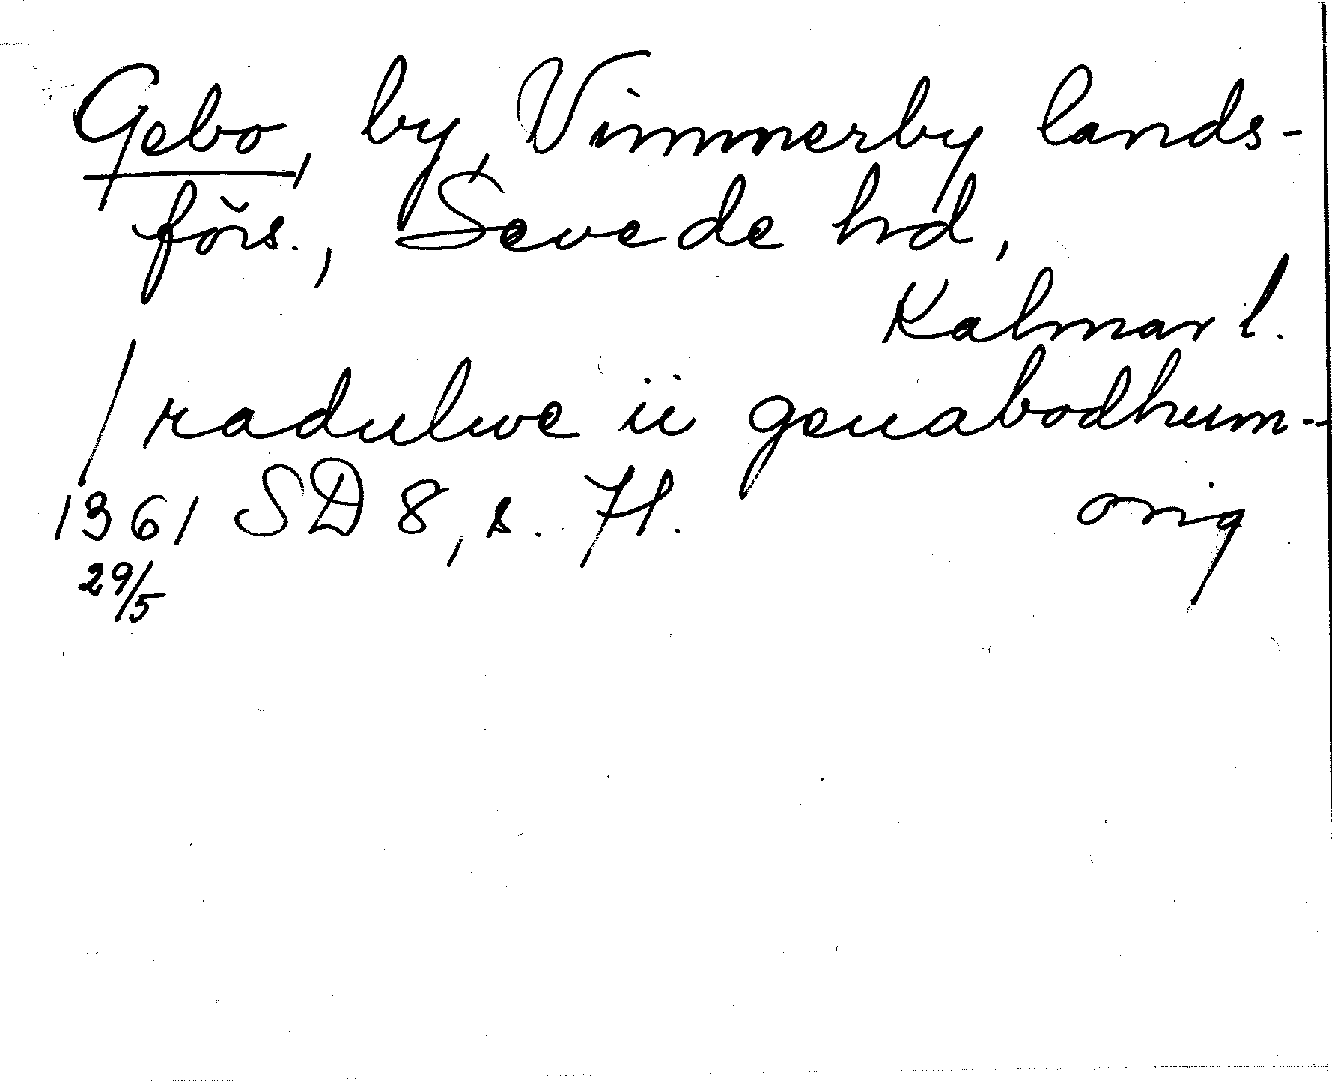 Gebo, by, Vimmerby lands-
förs., Sevede hd,
Kalmar l.
/ radulwe ii geuabodhum -
1361 SD 8, s. 71. orig
29/5